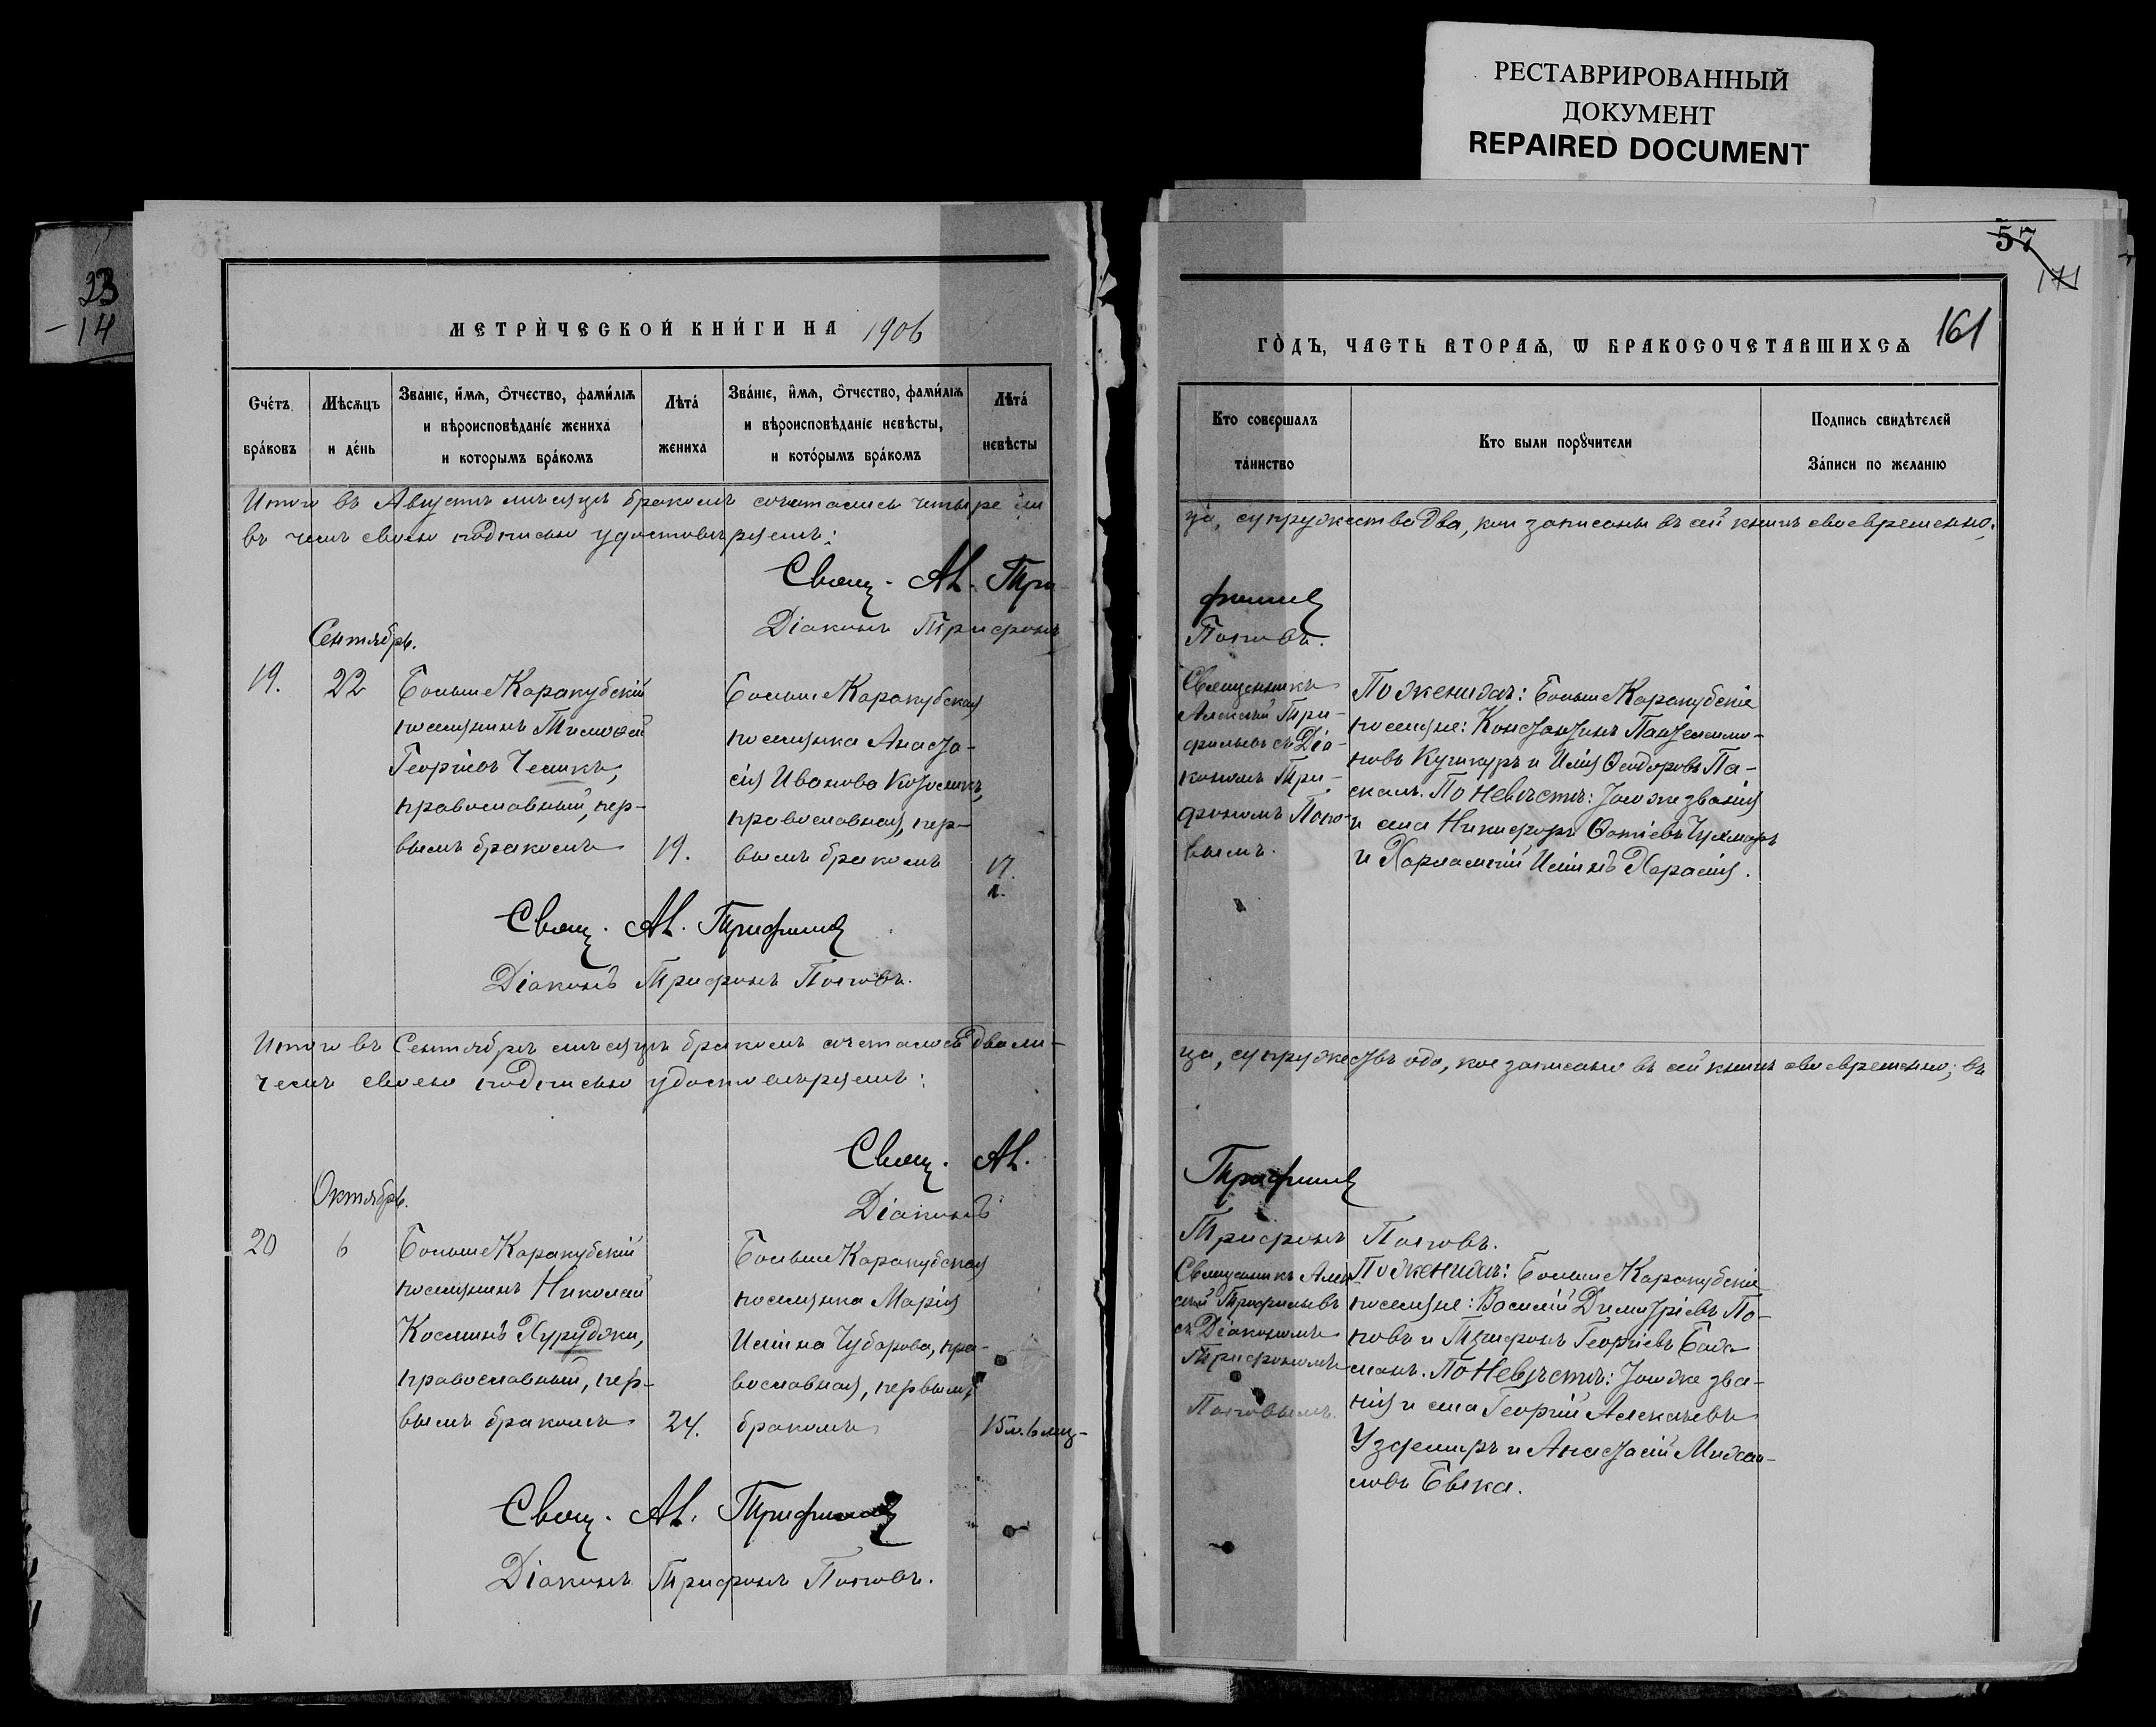 РЕСТАВРИРОВАННЫЙ
ДОКУМЕНТ
REPAIRED DOCUMENT
23
- 14
МЕТРИЧЕСКОЙ КНИГИ НА 1906
Счетъ браковъ
Мѣсяцъ и день
Званіе, имя, отчество, фамилія и вѣроисповѣданіе жениха и которымъ бракомъ
Лѣта жениха
Званіе, имя, отчество, фамилія и вѣроисповѣданіе невѣсты, и которымъ бракомъ
Лѣта невѣсты
Итого въ Августѣ мѣсяцѣ бракомъ сочетались четыре ли
въ чемъ своею подписью удостовѣряемъ:
Свящ. Ал. Три-
Діаконъ Трифонъ
Сентябрь.
19.
22
Больше Каракубскій
поселянинъ Тимоѳей
Георгіевъ Челикъ,
православный, пер-
вымъ бракомъ
19.
Больше Каракубская
поселянка Анаста-
сія Иванова
православная, пер-
вымъ бракомъ
17.
Свящ. Ал. Трифильев
Діаконъ Трифонъ Поповъ.
Итого въ Сентябрѣ мѣсяцѣ бракомъ сочеталось два ли-
чемъ своею подписью удостовѣряемъ:
Свящ. Ал.
Діаконъ
Октябрь.
20
6
Больше Каракубскій
поселянинъ Николай
Косминъ Хуруджи,
православный, пер-
вымъ бракомъ
24.
Больше Каракубская
поселянка Марія
Ильина Чубарова, пра-
вославная, первымъ
бракомъ
15 л. 6 мѣс-
Свящ. Ал. Трифильев
Діаконъ Трифонъ Поповъ.
57
171
161
ГОДЪ, ЧАСТЬ ВТОРАЯ, Ѡ БРАКОСОЧЕТАВШИХСЯ
Кто совершалъ таинство
Кто были поручители
Подпись свидѣтелей Записи по желанію
ца, супружества два, кои записаны въ сей книгѣ своевременно;
фильев
Поповъ.
Священникъ
Алексій Три-
фильевъ съ Діа-
кономъ Три-
фономъ Попо-
вымъ.
По женихѣ: Больше Каракубскіе
поселяне: Константинъ Пантелеймо-
новъ Кушкуръ и Илія Ѳеодоровъ Па-
скалъ. По невѣстѣ: того же званія
и села Никифоръ Фотіевъ
и Харлампій Ильинъ
ца, супружествъ одо, кое записано въ сей книгѣ своевременно; въ
Трифильев
Трифонъ Поповъ.
Священникъ Алек
сій Трифильевъ
съ Діакономъ
Трифономъ
Поповымъ.
По женихѣ: Больше Каракубскіе
поселяне: Василій Димитріевъ По-
повъ и Трифонъ Георгіевъ Бада-
манъ. По невѣстѣ: того же зва-
нія и села Георгій Алексѣевъ
Уздемиръ и Анастасій Михаи-
ловъ Быка.